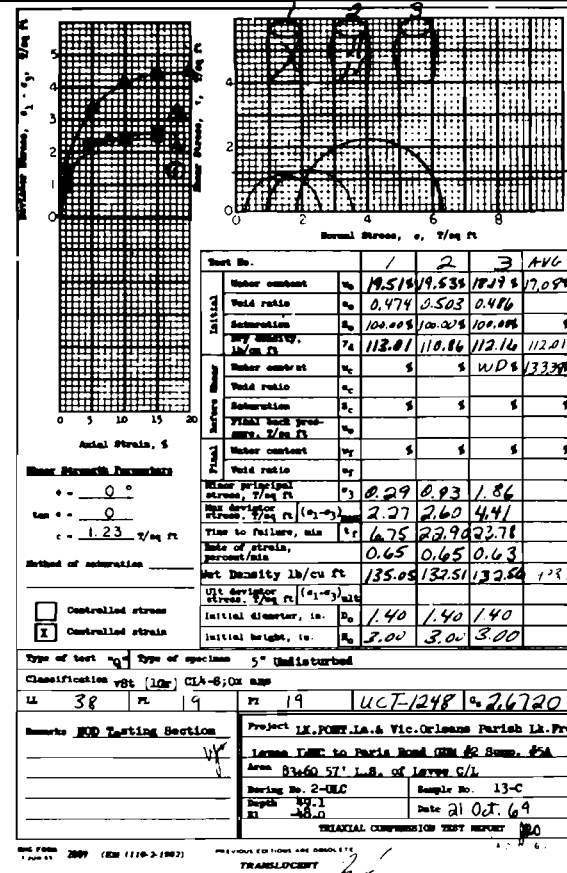 1 2 3
Deviator Stress, σ1 - σ3, T/sq ft
6
5
4
3
2
1
0
0 5 10 15 20
Axial Strain, %
Shear Stress, τ, T/sq ft
4
2
0
0 2 4 6 8
Normal Stress, σ, T/sq ft
Test No. 1 2 3 AVG
Initial
Water content w₀ 19.51% 19.53% 18.19%
Void ratio e₀ 0.474 0.503 0.486
Saturation S₀ 100.00% 100.00% 100.00%
Dry density, lb/cu ft γd 113.01 110.86 112.16 112.01
Before Shear
Water content wc % % WD %
Void ratio ec
Saturation Sc % % %
Final back pressure, T/sq ft u₀
Final
Water content wf % % %
Void ratio ef
Minor principal stress, T/sq ft σ3 0.29 0.93 1.86
Max deviator stress, T/sq ft (σ1-σ3)max 2.27 2.60 4.41
Time to failure, min tf 6.75 22.90 23.78
Rate of strain, percent/min 0.65 0.65 0.63
Wet Density lb/cu ft 135.05 132.51 132.56
Ult deviator stress, T/sq ft (σ1-σ3)ult
Initial diameter, in. D₀ 1.40 1.40 1.40
Initial height, in. H₀ 3.00 3.00 3.00
Shear Strength Parameters
φ = 0 °
tan φ = 0
c = 1.23 T/sq ft
Method of saturation
Controlled stress
X Controlled strain
Type of test "Q" Type of specimen 5" Undisturbed
Classification vSt
LL 38 PL 19 PI 19 UCT-1248 Gs 2.6720
Remarks NOD Testing Section
Project LK.PONT.La.& Vic.Orleans Parish Lk.Fro
to Paris Road GDM #2 Supp. #5A
Area 83+60 57' L.S. of Levee C/L
Boring No. 2-ULC Sample No. 13-C
Depth 49.1
El -48.0
Date 21 Oct. 69
TRIAXIAL COMPRESSION TEST REPORT
ENG FORM 2089 (EM 1110-2-1902) PREVIOUS EDITIONS ARE OBSOLETE
TRANSLUCENT